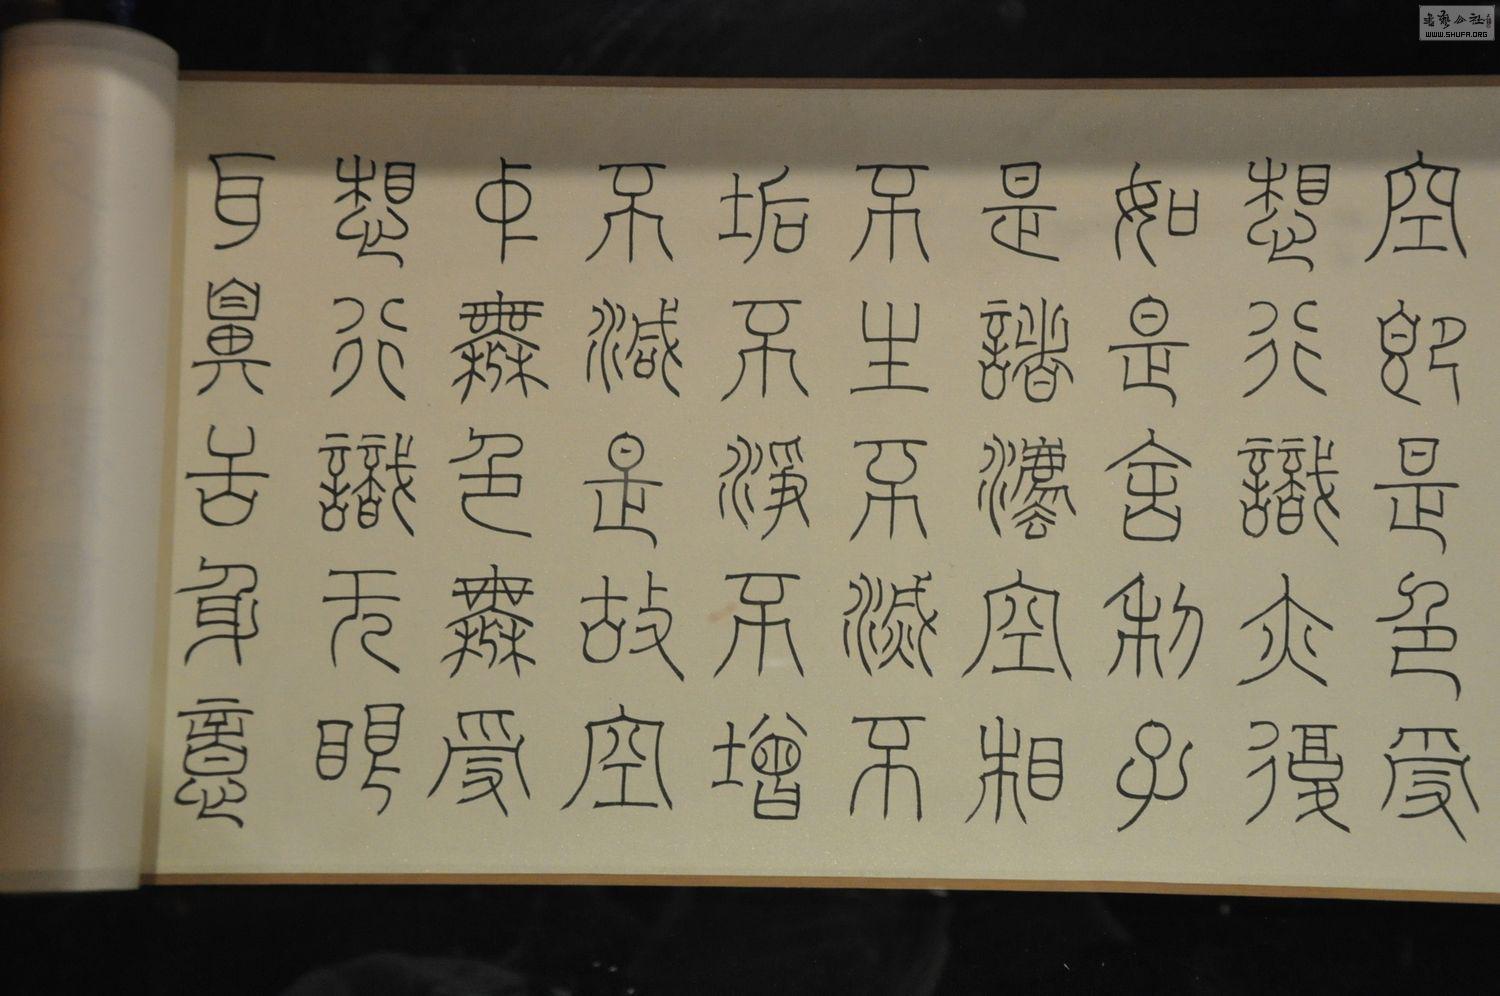 空即是色受
想行識亦復
如是舍利子
是諸灋空相
不生不滅不
垢不淨不增
不減是故空
中無色無受
想行識无眼
耳鼻舌身意
書藝公社
WWW.SHUFA.ORG